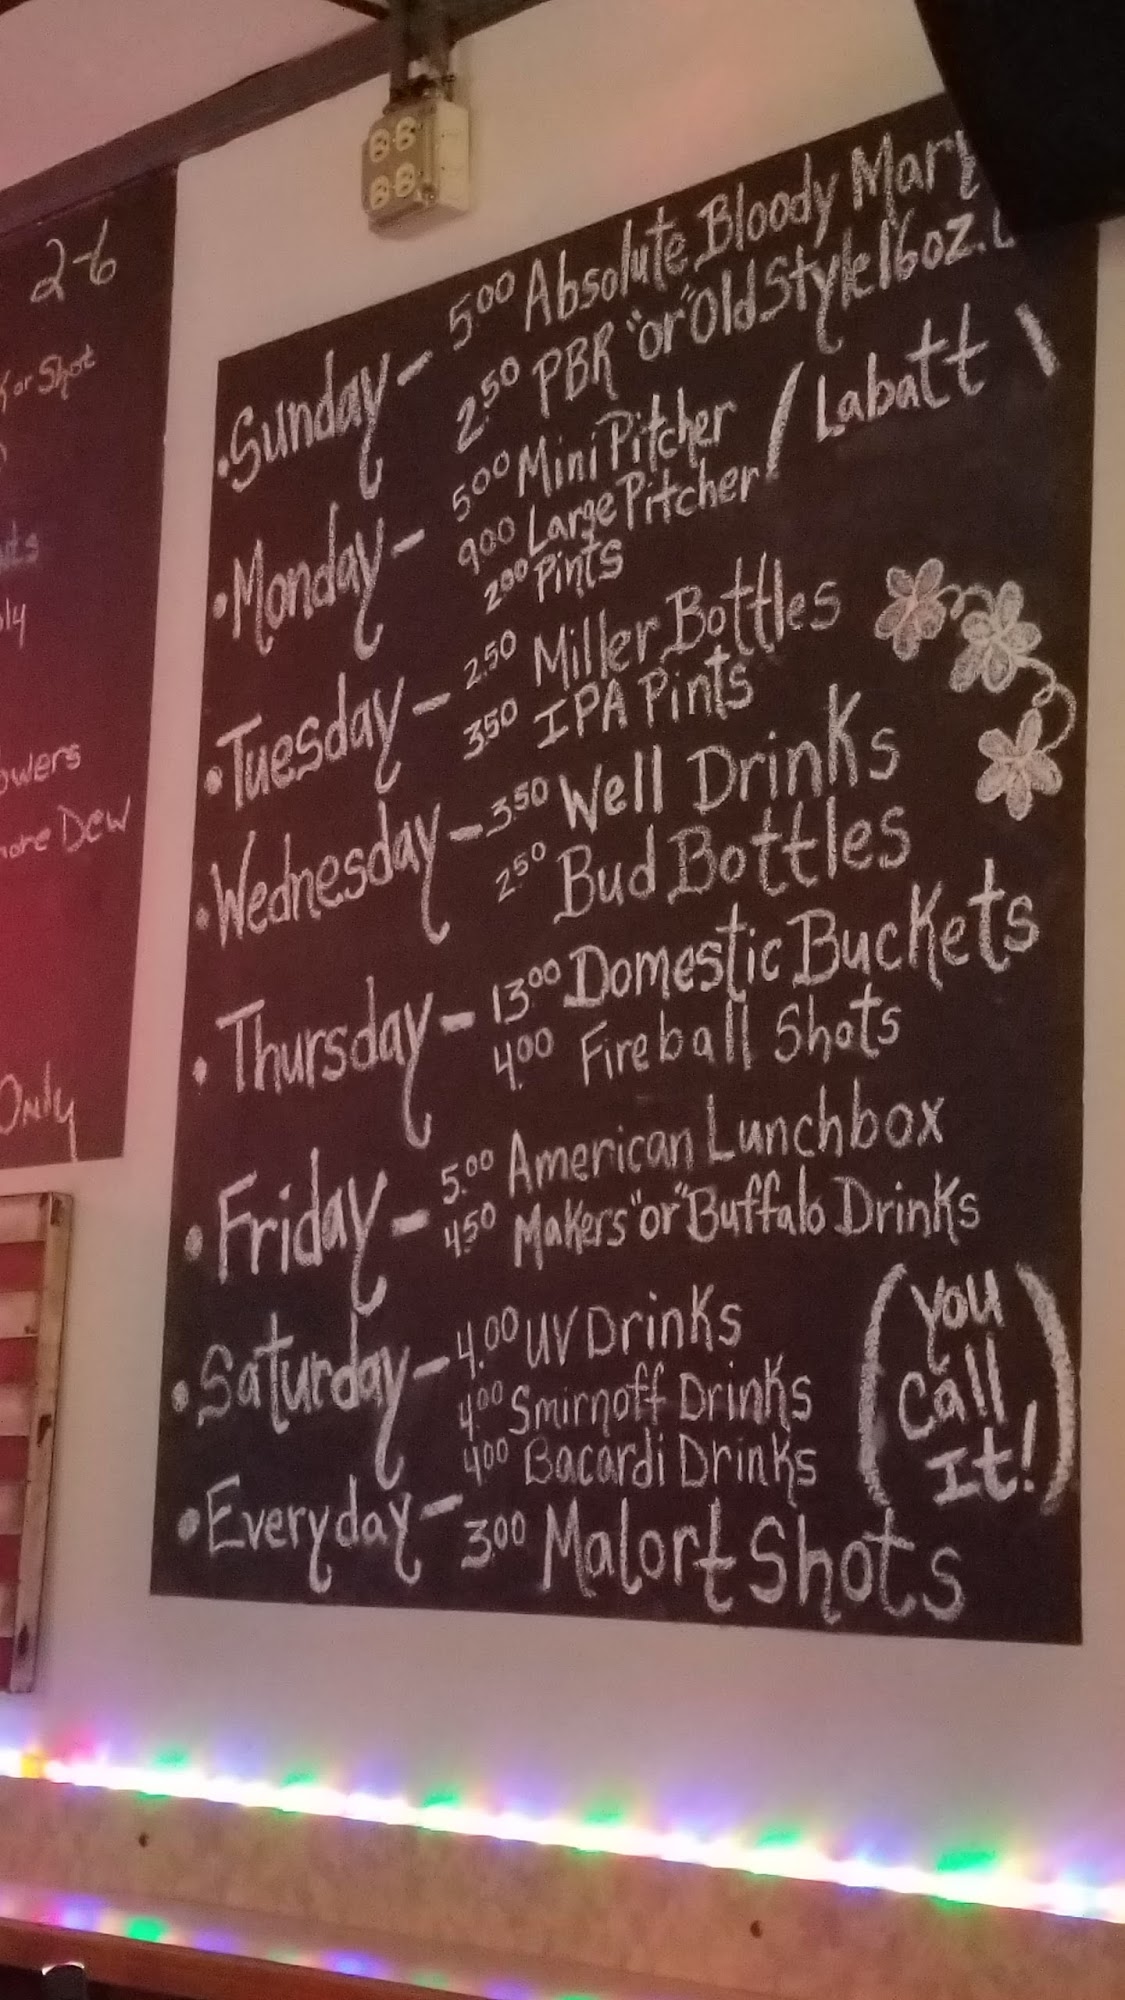 2-6
or Shot
owers
more Dew
Only
•Sunday - 5.00 Absolute Bloody Mary
2.50 PBR "or" Old Style 16oz.
•Monday - 5.00 Mini Pitcher
9.00 Large Pitcher / Labatt \
2.00 Pints
•Tuesday - 2.50 Miller Bottles
3.50 IPA Pints
•Wednesday - 3.50 Well Drinks
2.50 Bud Bottles
•Thursday - 13.00 Domestic Buckets
4.00 Fireball Shots
•Friday - 5.00 American Lunchbox
4.50 Makers "or" Buffalo Drinks
•Saturday - 4.00 UV Drinks
4.00 Smirnoff Drinks
4.00 Bacardi Drinks
(You
Call
It!)
•Everyday - 3.00 Malort Shots